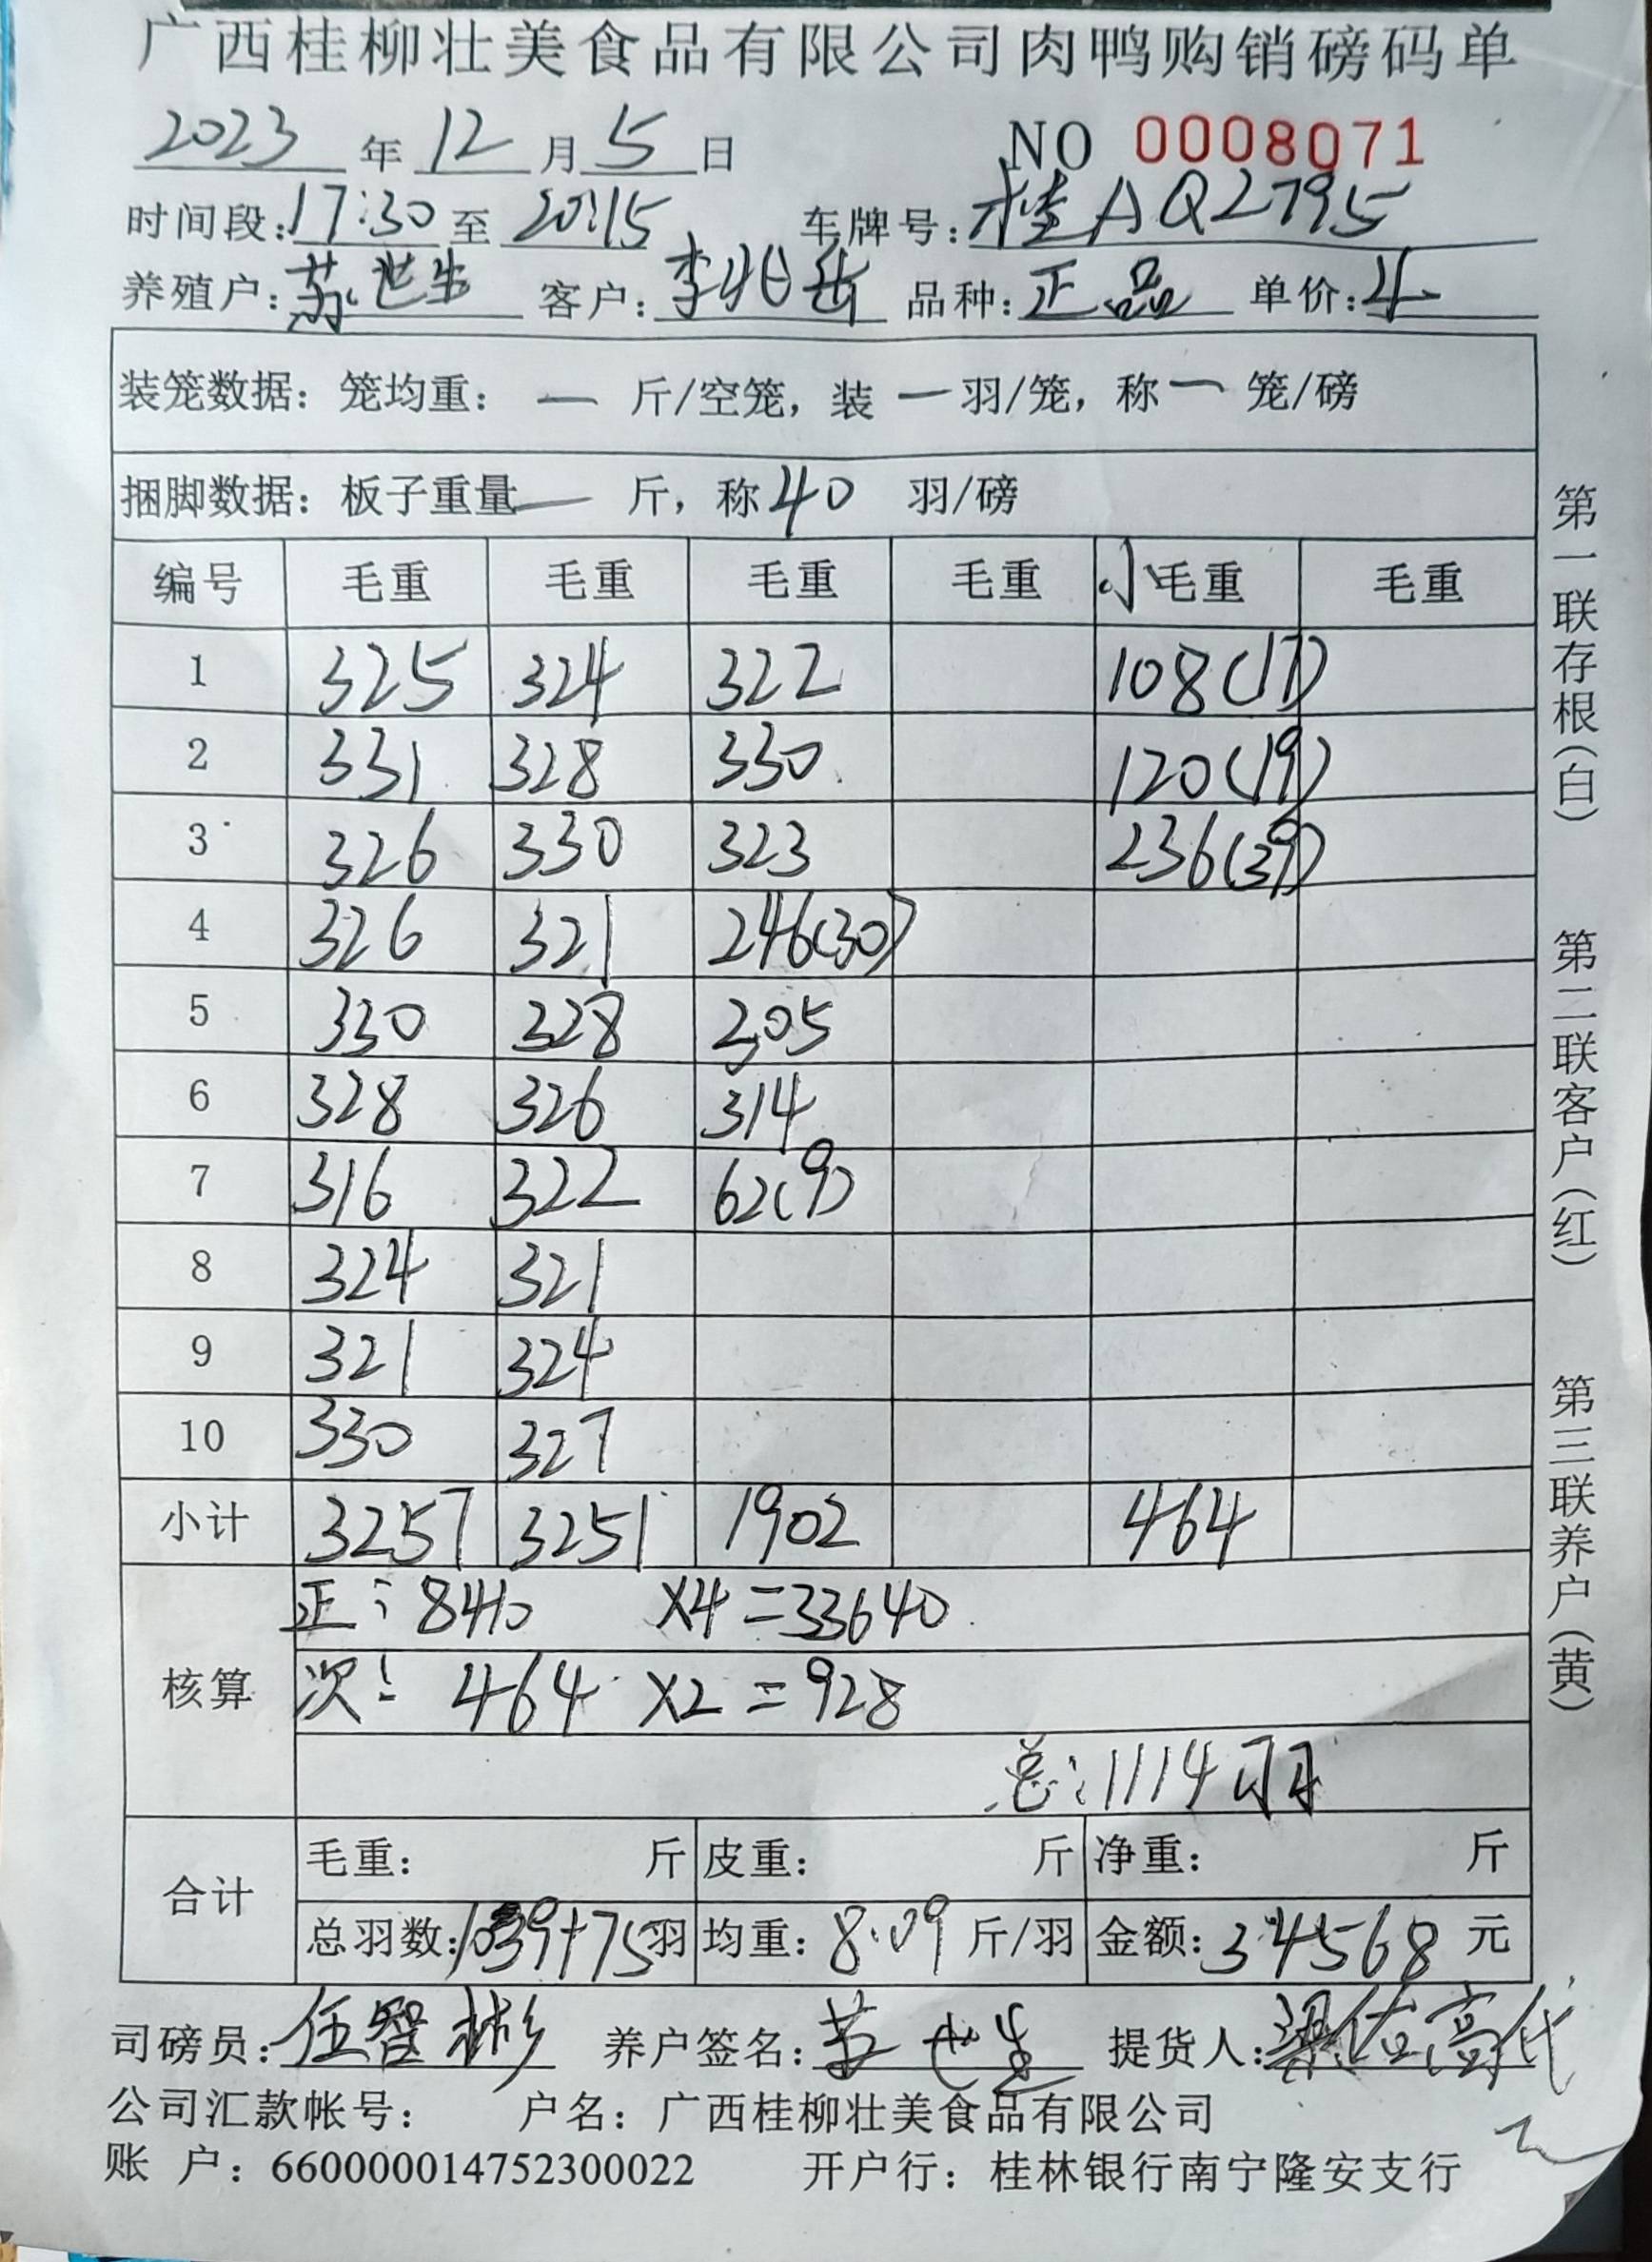 广西桂柳壮美食品有限公司肉鸭购销磅码单
2023 年 12 月 5 日 NO 0008071
时间段:17:30 至 20:15 车牌号:桂AQ2795
养殖户:苏世生 客户:李兆岳 品种:正品 单价:4
装笼数据:笼均重: 一 斤/空笼,装 一 羽/笼,称 一 笼/磅
捆脚数据:板子重量 — 斤,称 40 羽/磅
编号 毛重 毛重 毛重 毛重 小毛重 毛重
1 325 324 322 108(17)
2 331 328 330 120(19)
3 326 330 323 236(39)
4 326 321 246(30)
5 330 328 305
6 328 326 314
7 316 322 62(9)
8 324 321
9 321 324
10 330 327
小计 3257 3251 1902 464
核算 正:8410 ×4=33640
次: 464 ×2=928
总:1114羽
合计 毛重: 斤 皮重: 斤 净重: 斤
总羽数:1039+75羽 均重:8.09 斤/羽 金额:34568 元
司磅员:任智彬 养户签名:苏世生 提货人:梁佑高代
公司汇款帐号: 户名:广西桂柳壮美食品有限公司
账 户:660000014752300022 开户行:桂林银行南宁隆安支行
第一联存根(白) 第二联客户(红) 第三联养户(黄)